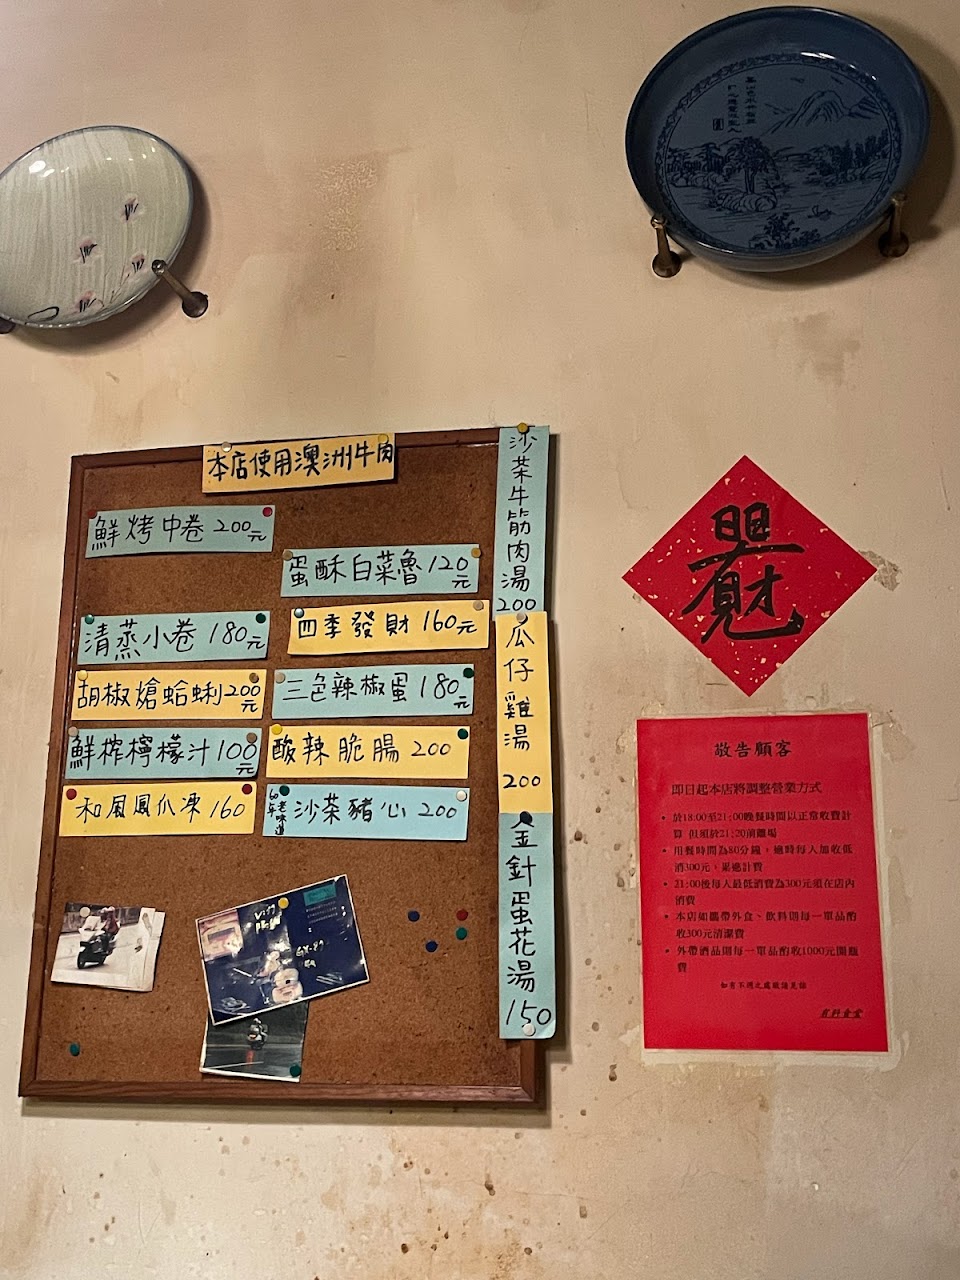 本店使用澳洲牛肉
鮮烤中卷 200元
蛋酥白菜魯 120元
清蒸小卷 180元
四季發財 160元
胡椒熗蛤蜊 200元
三色辣椒蛋 180元
鮮榨檸檬汁 100元
酸辣脆腸 200
和風鳳爪凍 160
60年老味道 沙茶豬心 200
沙茶牛筋肉湯 200
瓜仔雞湯 200
金針蛋花湯 150
敬告顧客
即日起本店將調整營業方式
• 於18:00至21:00晚餐時間以正常收費計
算 但須於21:20前離場
• 用餐時間為80分鐘，逾時每人加收低
消300元，累遞計費
• 21:00後每人最低消費為300元須在店內
消費
• 本店如攜帶外食、飲料則每一單品酌
收300元清潔費
• 外帶酒品則每一單品酌收1000元開瓶
費
如有不週之處敬請見諒